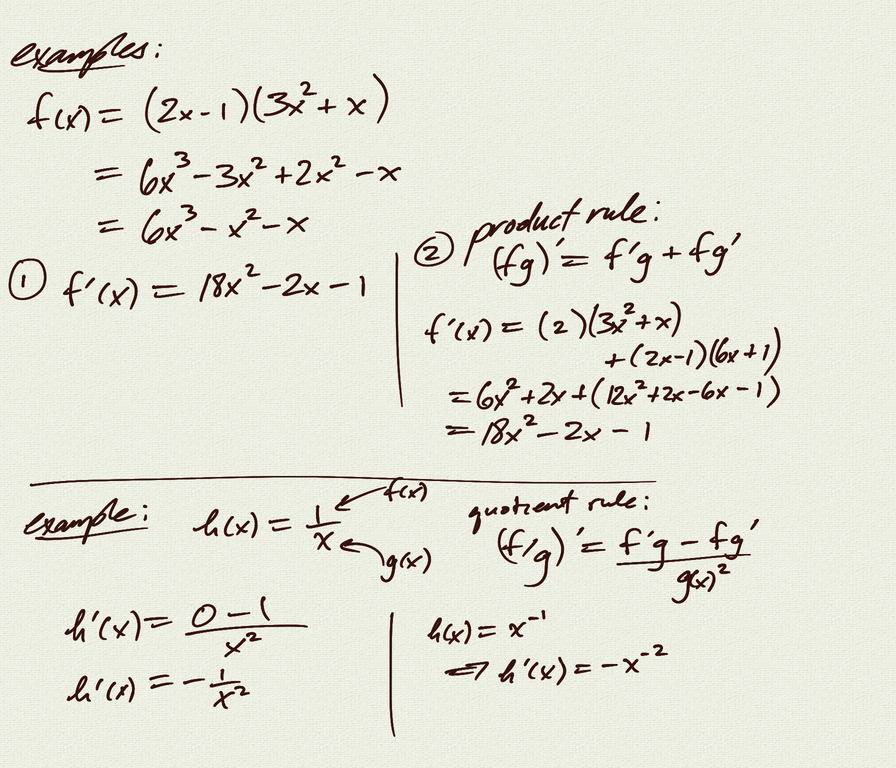 examples:
f(x) = (2x-1)(3x²+x)
= 6x³-3x²+2x²-x
= 6x³-x²-x
① f'(x) = 18x²-2x-1
② product rule:
(fg)' = f'g + fg'
f'(x) = (2)(3x²+x)
+(2x-1)(6x+1)
= 6x²+2x+(12x²+2x-6x-1)
= 18x²-2x-1
example: h(x) = 1/x
f(x)
g(x)
quotient rule:
(f/g)' = (f'g - fg')/g(x)²
h'(x) = (0-1)/x²
h'(x) = -1/x²
h(x) = x⁻¹
⇒ h'(x) = -x⁻²